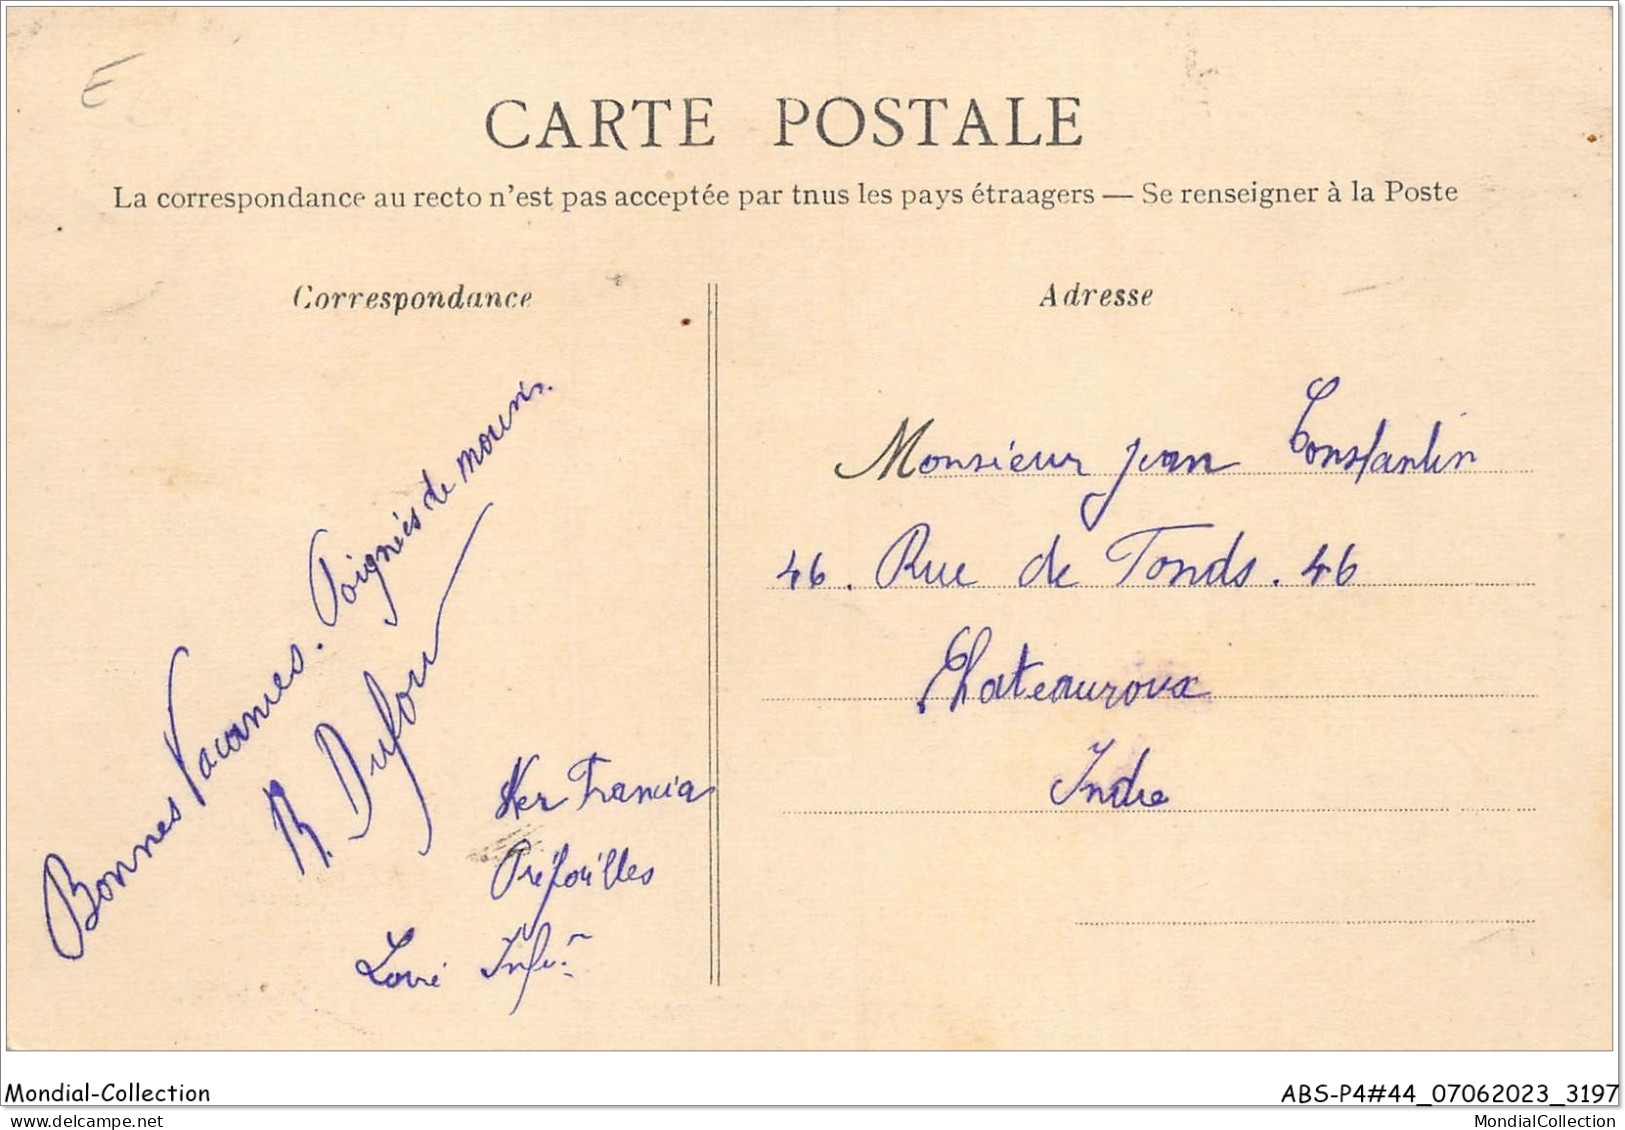 E
CARTE POSTALE
La correspondance au recto n'est pas acceptée par tnus les pays étraagers — Se renseigner à la Poste
Correspondance
Bonnes Vacances. Poignées de mains.
R. Dufour
Ker Francia
Préfailles
Loire Infre
Adresse
Monsieur Jean Constantin
46. Rue de Fonds. 46
Chateauroux
Indre
Mondial-Collection
ABS-P4#44_07062023_3197
delcampe.net
MondialCollection